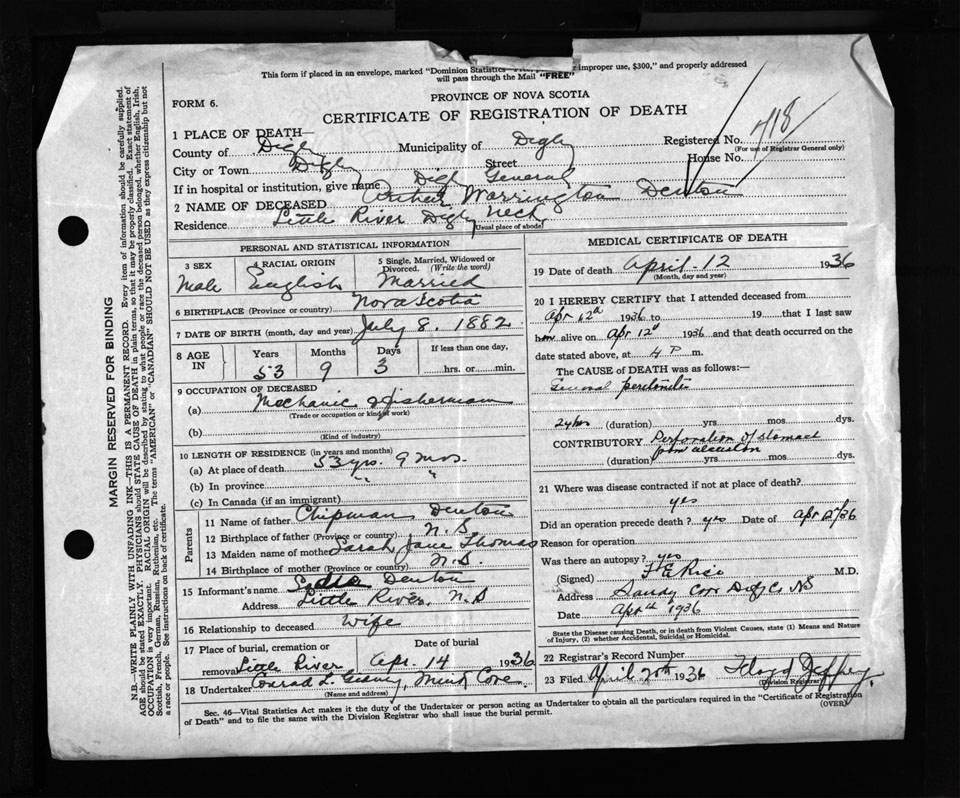 This form if placed in an envelope, marked "Dominion Statistics—Free, improper use, $300," and properly addressed
will pass through the Mail "FREE"
FORM 6.
PROVINCE OF NOVA SCOTIA
CERTIFICATE OF REGISTRATION OF DEATH
1 PLACE OF DEATH—
Registered No. 718
(For use of Registrar General only)
County of Digby Municipality of Digby
City or Town Digby Street House No.
If in hospital or institution, give name Digby General
2 NAME OF DECEASED Arthur Warrington Denton
Residence Little River Digby Neck
(Usual place of abode)
PERSONAL AND STATISTICAL INFORMATION
3 SEX 4 RACIAL ORIGIN 5 Single, Married, Widowed or Divorced. (Write the word)
Male English Married
6 BIRTHPLACE (Province or country) Nova Scotia
7 DATE OF BIRTH (month, day and year) July 8. 1882
8 AGE IN Years Months Days If less than one day,
53 9 3 hrs. or min.
9 OCCUPATION OF DECEASED
(a) Mechanic & fisherman
(Trade or occupation or kind of work)
(b)
(Kind of industry)
10 LENGTH OF RESIDENCE (in years and months)
(a) At place of death 53 yrs. 9 mos.
(b) In province " "
(c) In Canada (if an immigrant)
Parents
11 Name of father Chipman Denton
12 Birthplace of father (Province or country) N.S
13 Maiden name of mother Sarah Jane Thomas
14 Birthplace of mother (Province or country) N.S.
15 Informant's name Denton
Address Little River, N.S
16 Relationship to deceased Wife
17 Place of burial, cremation or removal Little River Date of burial Apr. 14 1936
18 Undertaker Conrad L. Mink Cove
(Name and address)
MEDICAL CERTIFICATE OF DEATH
19 Date of death April 12 1936
(Month, day and year)
20 I HEREBY CERTIFY that I attended deceased from
Apr 1936 to 19 that I last saw
him alive on Apr 12 1936 and that death occurred on the
date stated above, at 4 P m.
The CAUSE OF DEATH was as follows:—
General peritonitis
24 hrs (duration) yrs mos dys.
CONTRIBUTORY Perforation of stomach
from ulceration
(duration) yrs mos dys.
21 Where was disease contracted if not at place of death?
yes
Did an operation precede death? yes Date of Apr 12/36
Reason for operation
Was there an autopsy? yes
(Signed) F E Rice M.D.
Address Sandy Cove Digby Co NS
Date Apr 1936
State the Disease causing Death, or in death from Violent Causes, state (1) Means and Nature
of Injury, (2) whether Accidental, Suicidal or Homicidal.
22 Registrar's Record Number
23 Filed April 20th 1936 Floyd Jeffrey
Division Registrar
Sec. 46—Vital Statistics Act makes it the duty of the Undertaker or person acting as Undertaker to obtain all the particulars required in the "Certificate of Registration
of Death" and to file the same with the Division Registrar who shall issue the burial permit.
(OVER)
MARGIN RESERVED FOR BINDING
N.B.—WRITE PLAINLY WITH UNFADING INK—THIS IS A PERMANENT RECORD. Every item of information should be carefully supplied.
AGE should be stated EXACTLY. PHYSICIANS should STATE CAUSE OF DEATH in plain terms, so that it may be properly classified. Exact statement of
OCCUPATION is very important. RACIAL ORIGIN will be described by stating to what people or race the deceased person belonged, whether English, Irish,
Scottish, French, German, Russian, Ruthenian, etc. The terms "AMERICAN" or "CANADIAN" SHOULD NOT BE USED as they express citizenship but not
a race or people. See instructions on back of certificate.